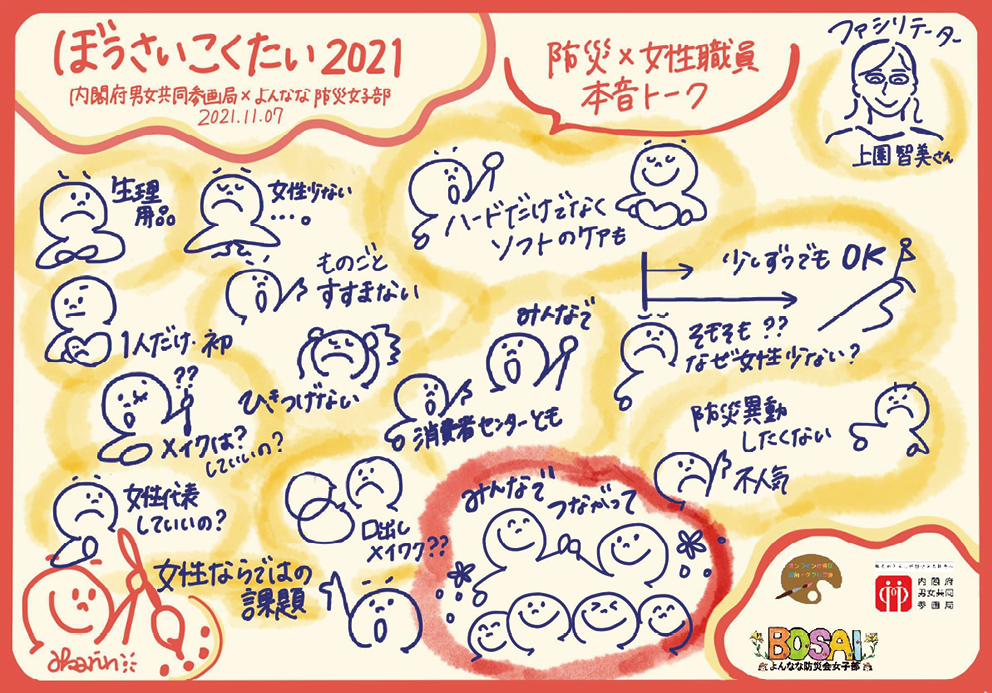 ぼうさいこくたい2021
内閣府男女共同参画局×よんなな防災女子部
2021.11.07
防災×女性職員
本音トーク
ファシリテーター
上園智美さん
生理
用品
女性少ない
…。
ハードだけでなく
ソフトのケアも
ものごと
すすまない
少しずつでもOK
1人だけ・初
ひきつげない
みんなで
消費者センターとも
そもそも??
なぜ女性少ない?
??
メイクは?
していいの?
防災異動
したくない
不人気
女性代表
していいの?
口出し
メイワク??
みんなで
つながって
女性ならではの
課題
akarin
内閣府
男女共同
参画局
BOSAI
よんなな防災会女子部